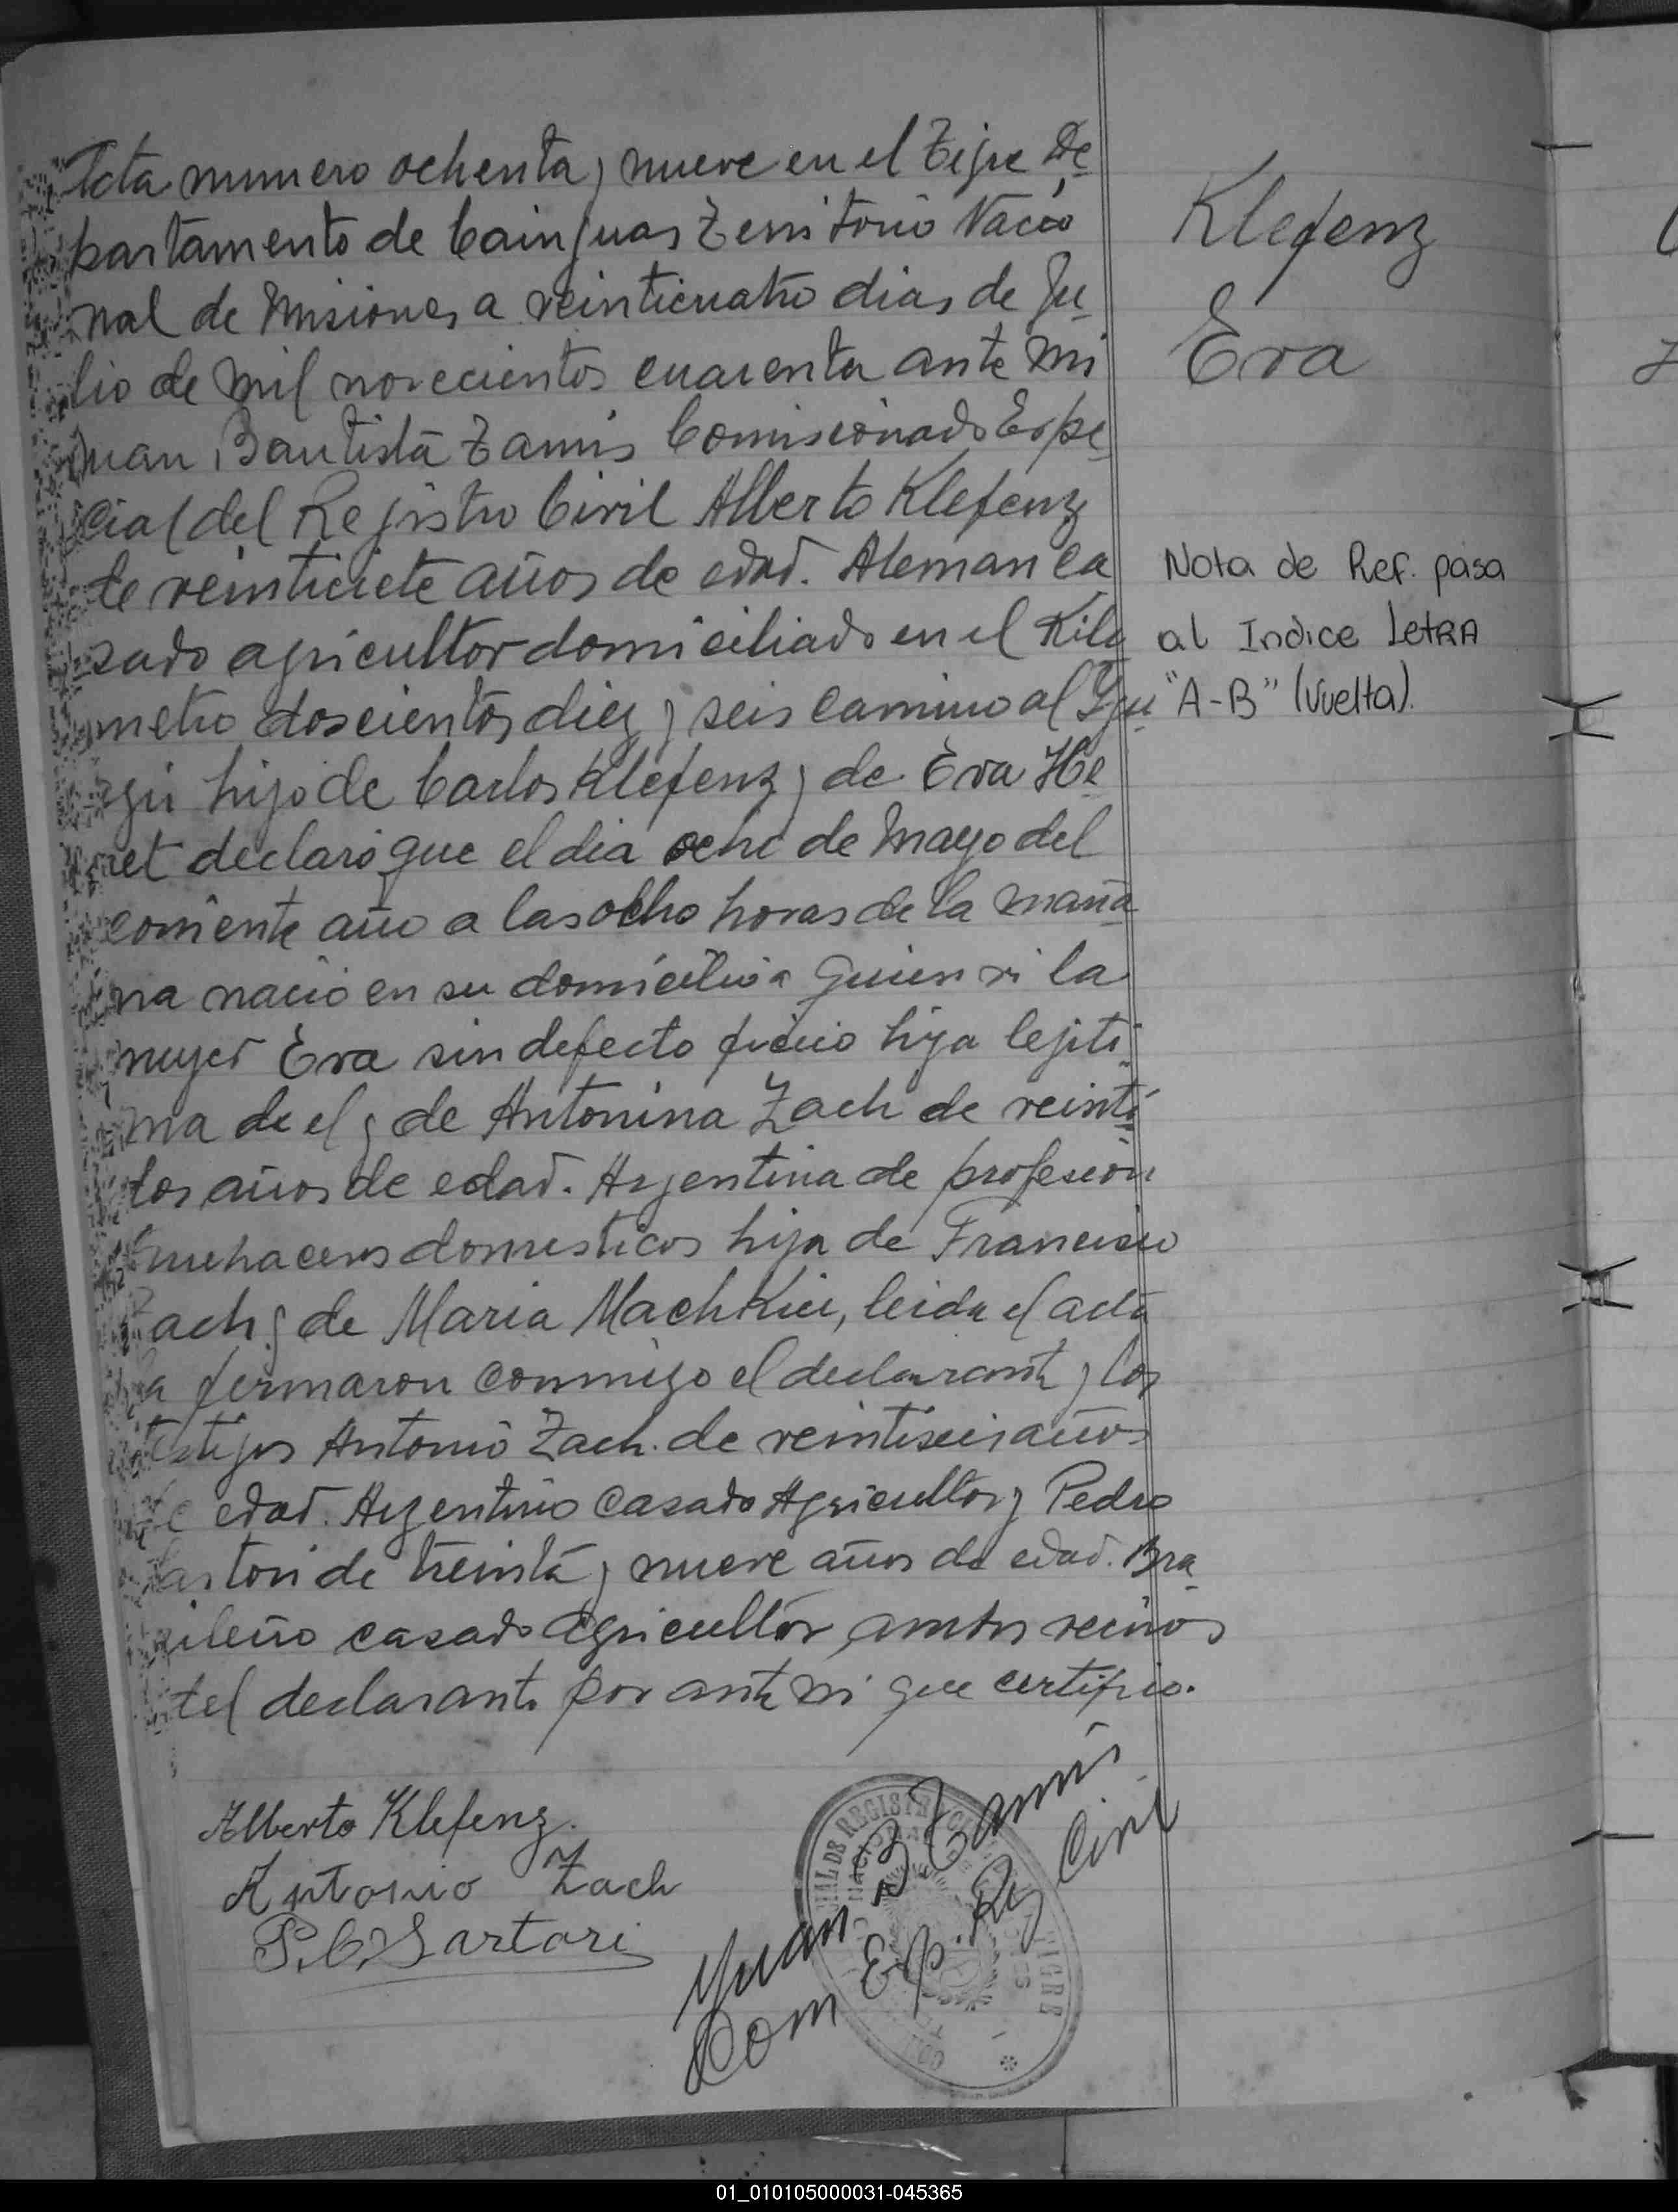 Acta numero ochenta y nueve en el Tigre De
partamento de Cainguas Territorio Nacio
nal de Misiones a veinticuatro dias de Ju
lio de Mil novecientos cuarenta ante Mi
Juan Bautista Zamis Comisionado Espe
cial del Registro Civil Alberto Klefenz
de veinticiete años de edad. Aleman ca
sado agricultor domiciliado en el Kilo
metro doscientos diez y seis camino al Ygu
azú hijo de Carlos Klefenz y de Eva He
ret declaró que el dia ocho de Mayo del
corriente año a las ocho horas de la maña
na nació en su domicilio a quien vi la
mujer Eva sin defecto ficico hija lejiti
ma de el y de Antonina Zach de veinti
dos años de edad. Argentina de profesion
quehaceres domesticos hija de Francisco
Zach y de Maria leida el acta
la fermaron conmigo el declarante y los
testigos Antonio Zach de veintiseis años
de edad. Argentino Casado Agricultor y Pedro
de treinta y nueve años de edad. Bra
zileño casado agricultor ambos vecinos
del declarante por ante mi que certifico.
Alberto Klefenz.
Antonio Zach
P. C. Sartori
Juan B Zamis
Com Esp. Reg Civil
Klefenz
Eva
Nota de Ref. pasa
al Indice LetRA
"A-B" (Vuelta).
01_010105000031-045365